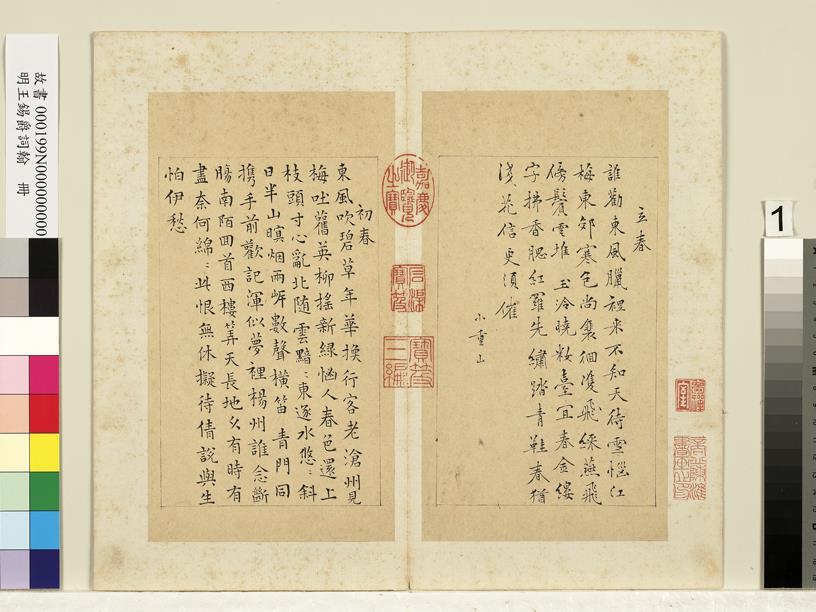 立春
誰勸東風臘裡来不知天待雪惱江
梅東郊寒色尚裵徊雙飛綵燕飛
傍鬢雲堆 玉冷曉粧臺宜春金縷
字拂香腮紅羅先繡踏青鞋春猶
淺花信更須催
小重山
嘉慶御覽之寶
石渠寶笈
寶笈三編
初春
東風吹碧草年華換行客老滄州見
梅吐舊英柳搖新緑惱人春色還上
枝頭寸心亂北随雲黯〻東逐水悠〻斜
日半山暝烟兩岍數聲橫笛 青門同
携手前歡記渾似夢裡楊州誰念斷
腸南陌回首西樓筭天長地久有時有
盡奈何綿〻此恨無休擬待倩説與生
怕伊愁
故書 000199N000000000
明王錫爵詞翰 冊
1